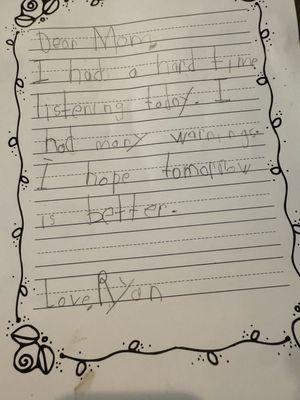 Dear Mom,
I had a hard time
listening today. I
had many warnings.
I hope tomorrow
is better.
Love, Ryan